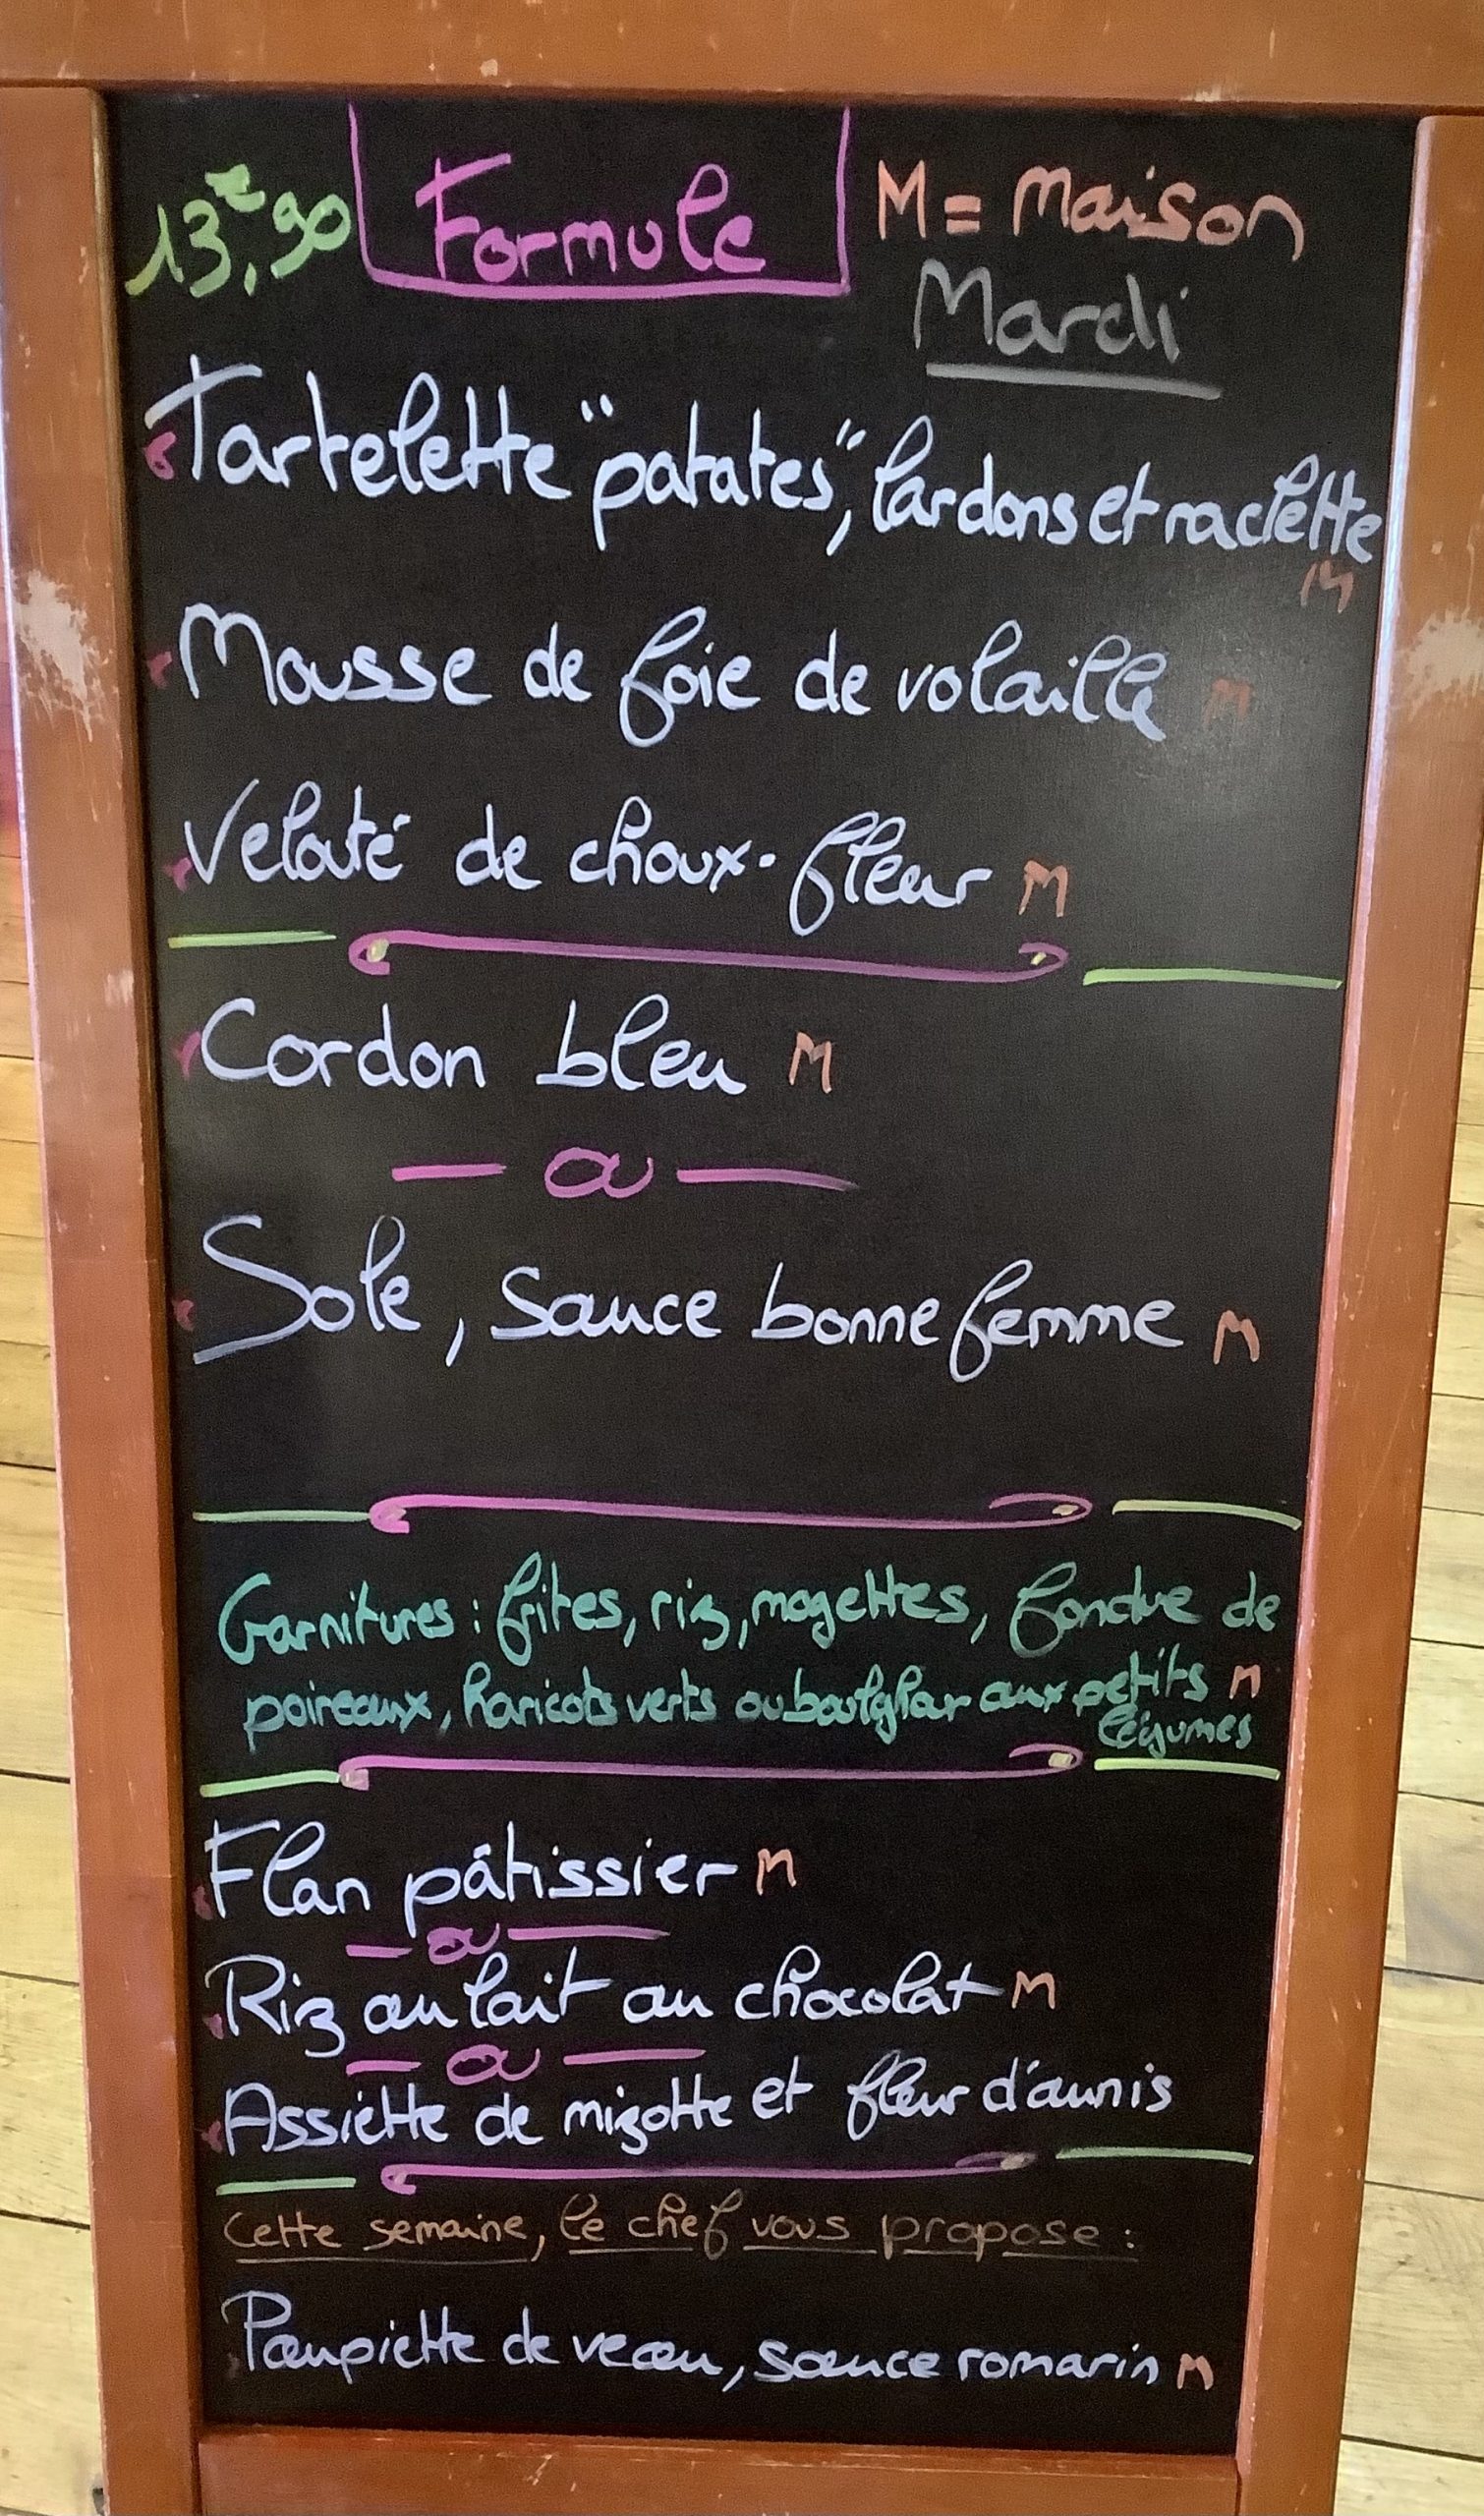 13,€90 Formule M = Maison
Mardi
Tartelette "patates", lardons et raclette
M
Mousse de foie de volaille M
Velouté de choux-fleur M
Cordon bleu M
— ou —
Sole, Sauce bonne femme M
Garnitures : frites, riz, mogettes, fondue de
poireaux, haricots verts ou boulghar aux petits M
légumes
Flan pâtissier M
— ou —
Riz au lait au chocolat M
— ou —
Assiette de mizotte et fleur d'aunis
Cette semaine, le chef vous propose :
Paupiette de veau, sauce romarin M